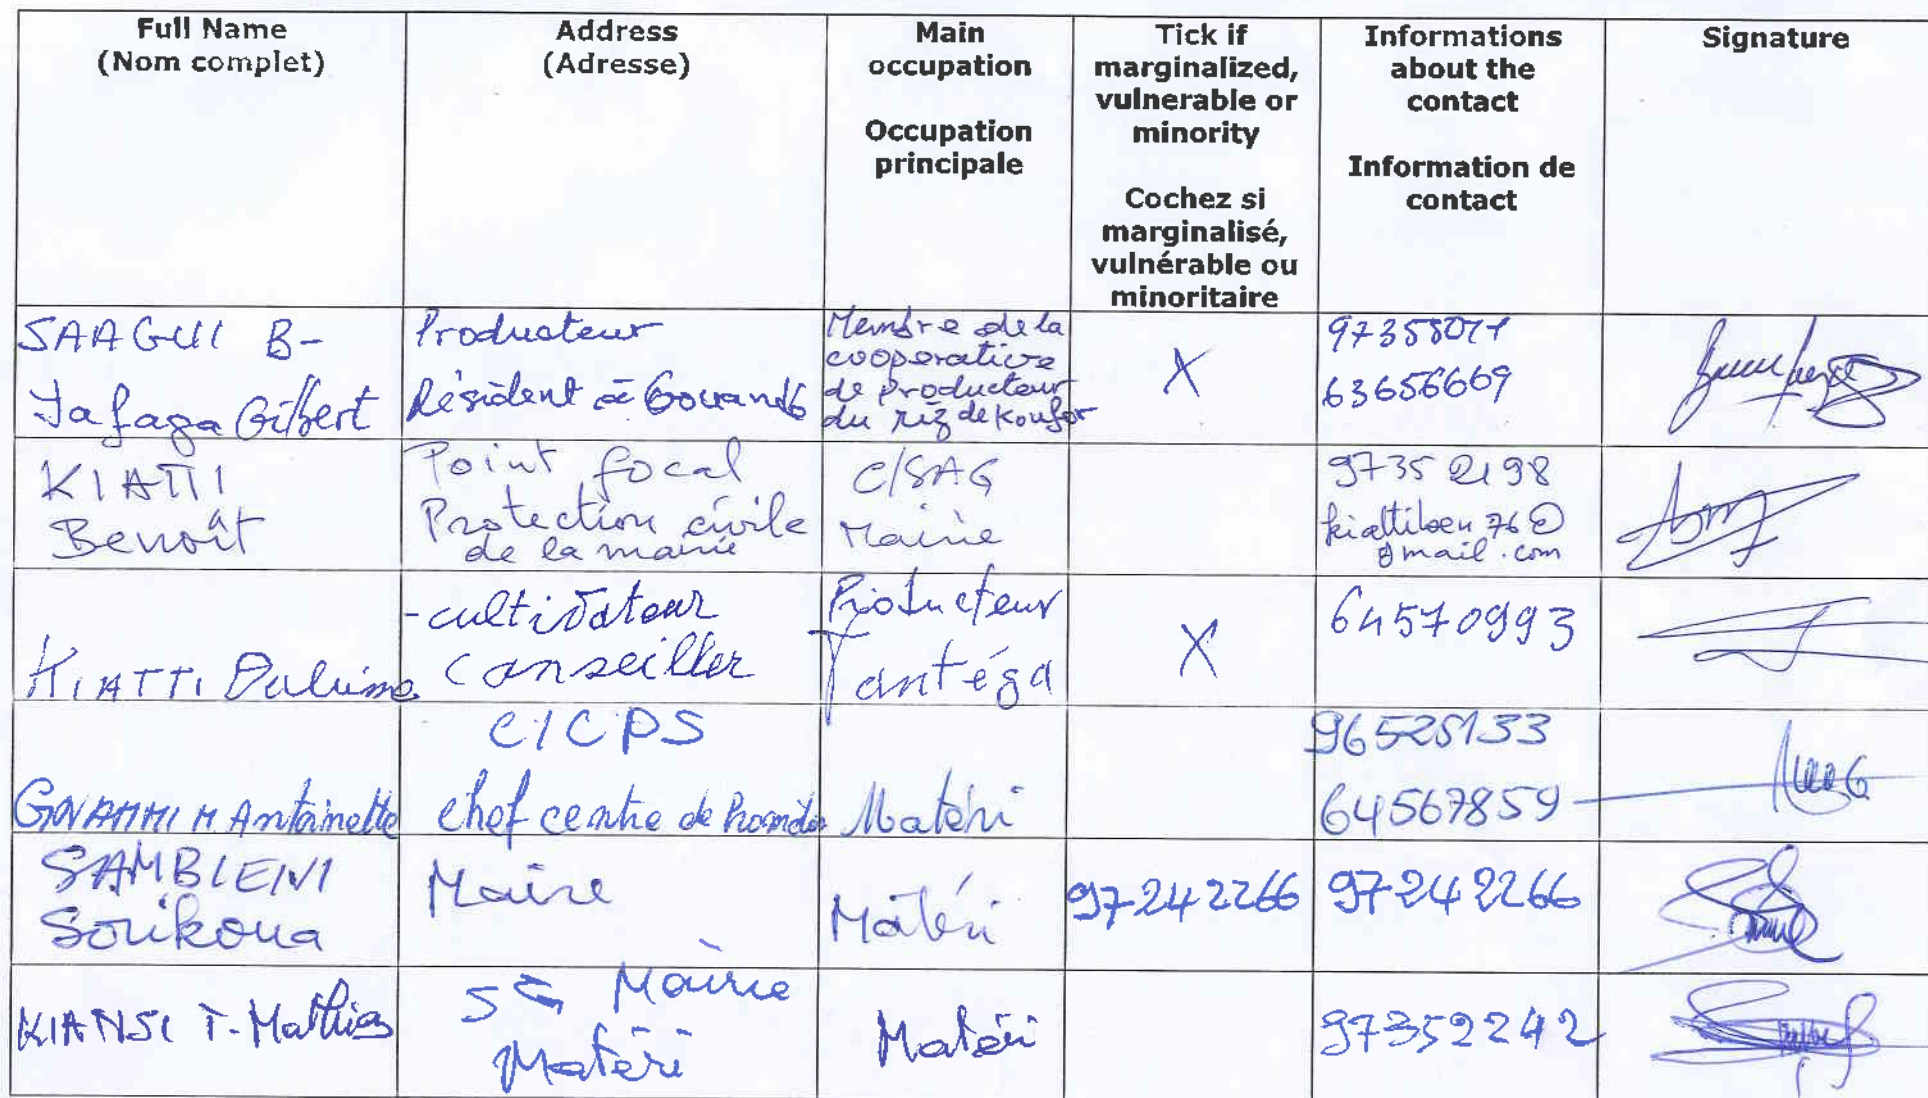 Full Name
(Nom complet)
Address
(Adresse)
Main
occupation
Occupation
principale
Tick if
marginalized,
vulnerable or
minority
Cochez si
marginalisé,
vulnérable ou
minoritaire
Informations
about the
contact
Information de
contact
Signature
SAAGUI B-
Gilbert
Producteur
Résident à
Membre de la
cooperative
de producteur
du riz de Koufor
X
63656669
KIATTI
Benoît
Point focal
Protection civile
de la mairie
C/SAG
Mairie
97352198
kiattiben76@
gmail.com
KIATTI
-cultivateur
conseiller
Producteur
Tantéga
X
64570993
M Antoinette
C/CPS
chef centre de
Matéri
96525133
64567859
SAMBIENI
Sorikoua
Maire
Matéri
97242266
97242266
KIANSI T-Mathias
Mairie
Matéri
Matéri
97352242